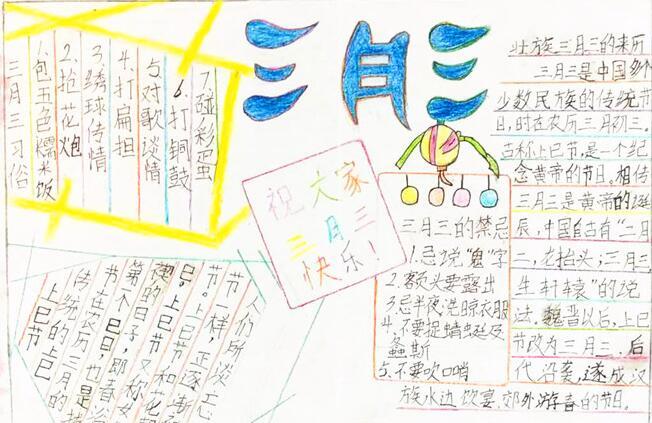 三月三
三月三习俗
1.包五色糯米饭
2.抢花炮
3.绣球传情
4.打扁担
5.对歌谈情
6.打铜鼓
7.碰彩蛋
祝大家
三月三
快乐！
三月三的禁忌
1.忌说“鬼”字
2.额头要露出
3.忌半夜洗晾衣服
4.不要捉蜻蜓及
螽斯
5.不要吹口哨
壮族三月三的来历
三月三是中国多个
少数民族的传统节
日，时在农历三月初三。
古称上巳节，是一个纪
念黄帝的节日。相传
三月三是黄帝的诞
辰，中国自古有“二月
二，龙抬头；三月三，
生轩辕”的说
法。魏晋以后，上巳
节改为三月三，后
代沿袭，遂成汉
族水边饮宴、郊外游春的节日。
上巳节
传统的上巳
节在农历三月的
第一个巳日，也是
的日子，即春浴
日。上巳节又称女
节。上巳节和花
节一样，正逐渐
人们所淡忘